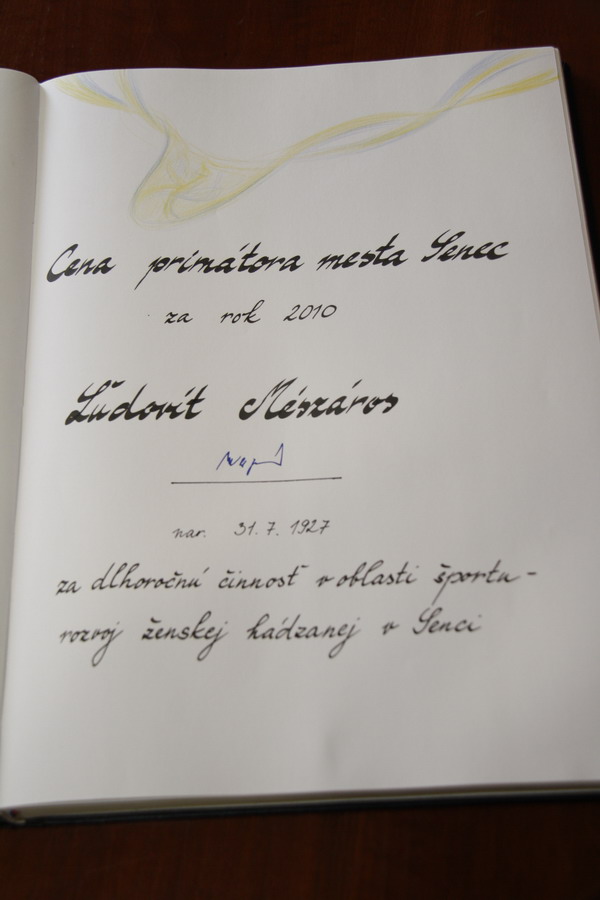 Cena primátora mesta Senec
za rok 2010
Ľudovít Mészáros
nar. 31.7.1927
za dlhoročnú činnosť v oblasti športu -
rozvoj ženskej hádzanej v Senci